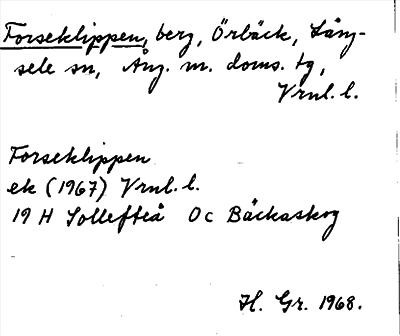 Forseklippen, berg, Örbäck, Lång-
sele sn, Ång. m. doms. tg,
Vrnl. l.
Forseklippen
ek (1967) Vrnl. l.
19 H Sollefteå 0c Bäckaskog
H. Gr. 1968.